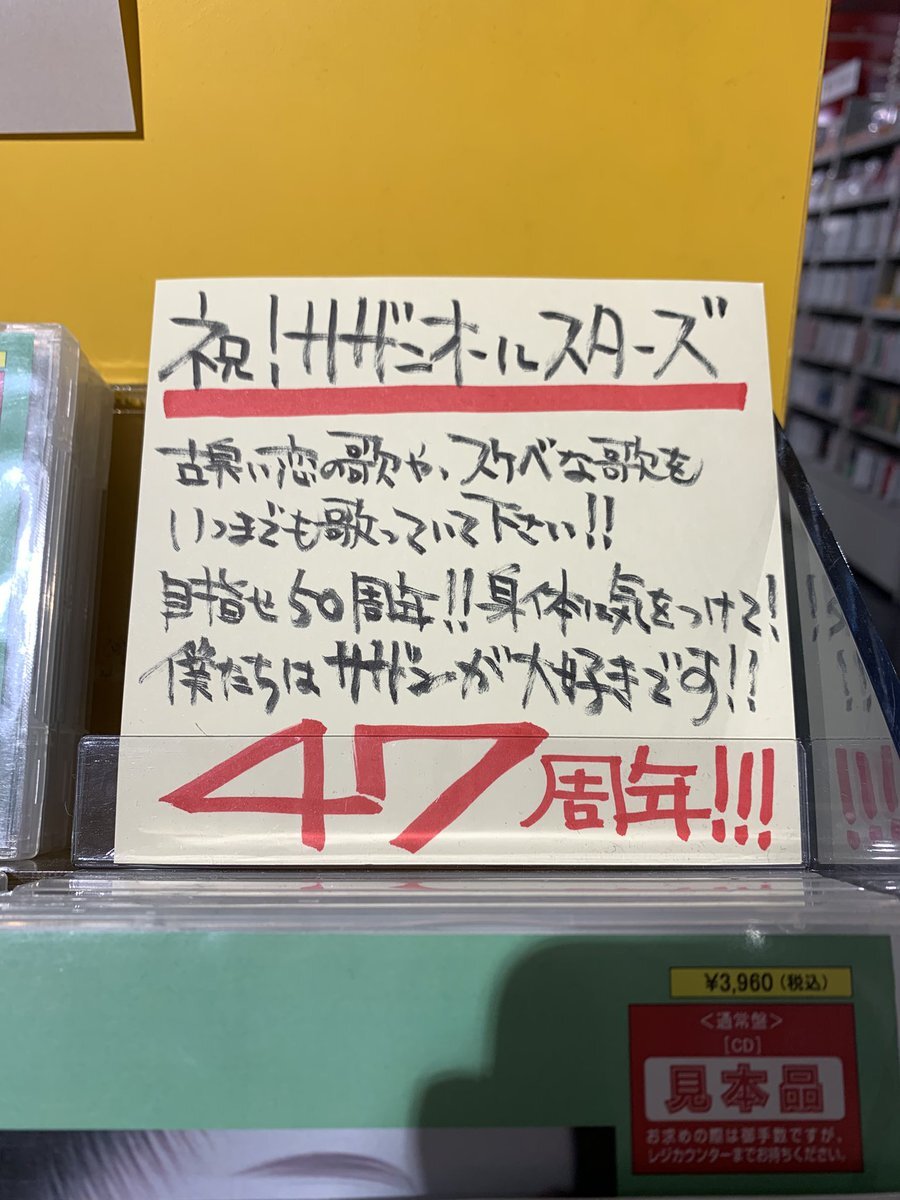 祝!サザンオールスターズ
古臭い恋の歌や、スケベな歌を
いつまでも歌っていて下さい!!
目指せ50周年!!身体に気をつけて!
僕たちはサザンが大好きです!!
47周年!!!
¥3,960(税込)
<通常盤>
[CD]
見本品
お求めの際は御手数ですが、
レジカウンターまでお持ちください。